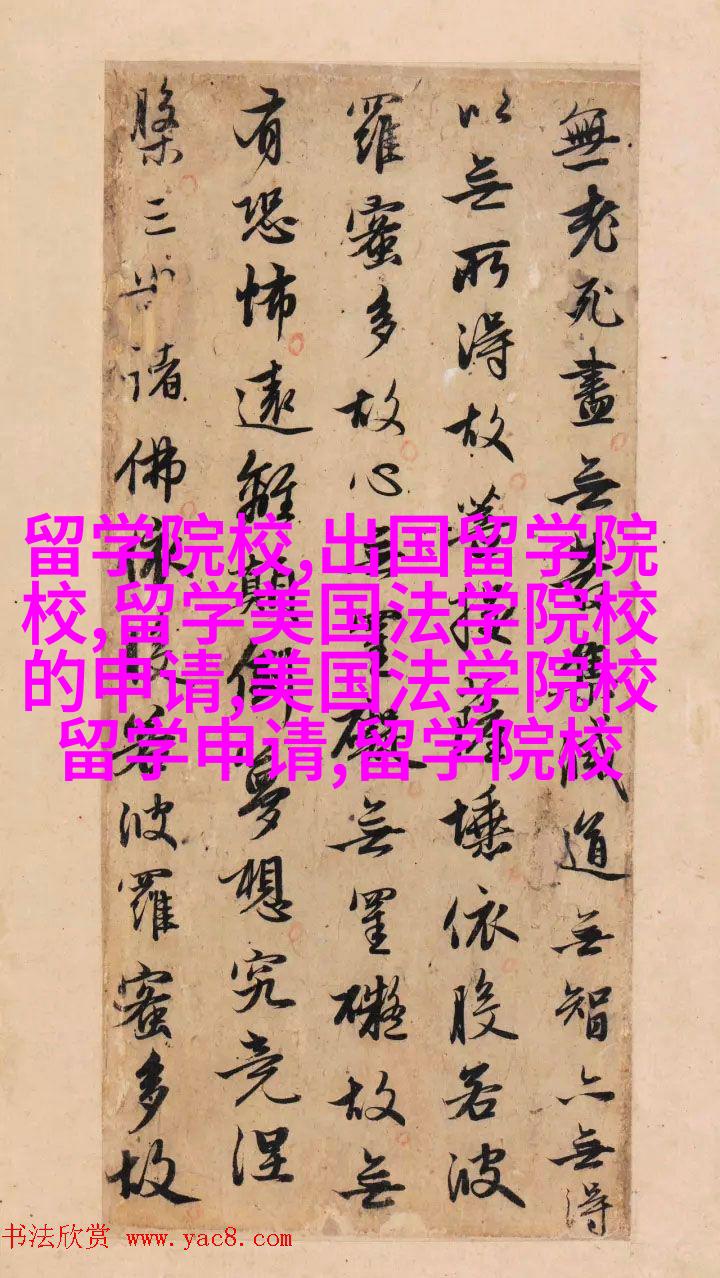 無老死盡无苦集滅道无智亦无得
以无所得故菩提薩埵依般若波
羅蜜多故心无罣礙无罣礙故无
有恐怖遠離顛倒夢想究竟涅
槃三世諸佛依般若波羅蜜多故
留学院校,出国留学院
校,留学美国法学院校
的申请,美国法学院校
留学申请,留学院校
书法欣赏 www.yac8.com